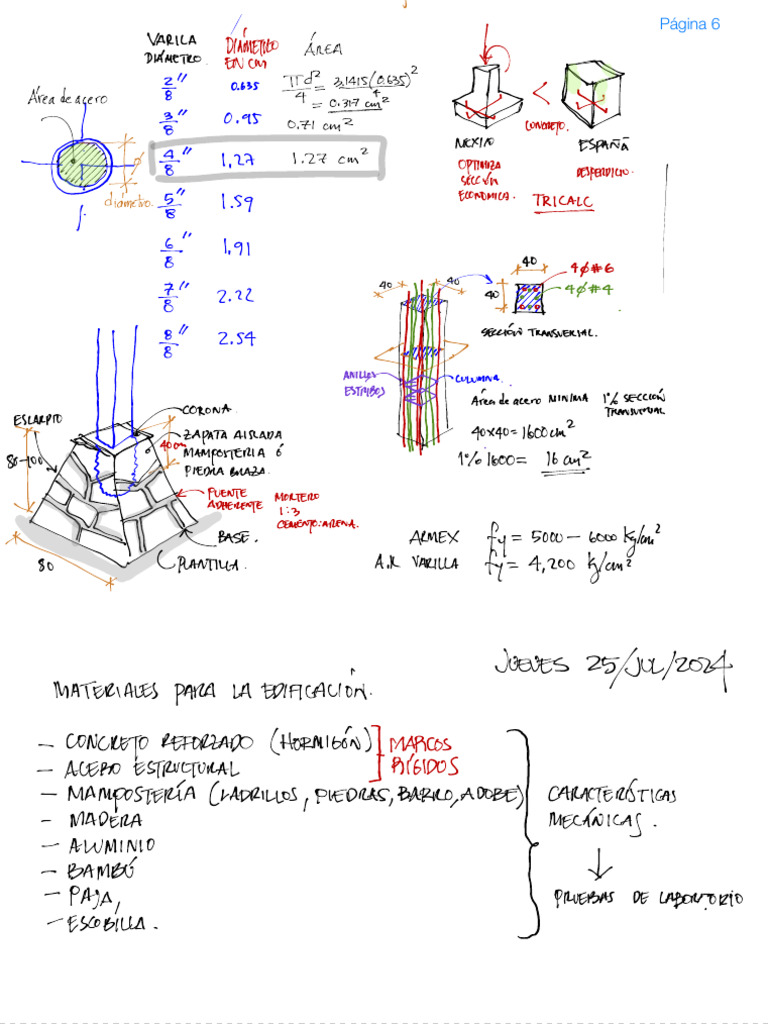 Página 6
VARILLA
DIÁMETRO.
DIÁMETRO
EN CM
ÁREA
2/8" 0.635 πd²/4 = 3.1415(0.635)²/4
= 0.317 cm²
3/8" 0.95 0.71 cm²
4/8" 1.27 1.27 cm²
5/8" 1.59
6/8" 1.91
7/8" 2.22
8/8" 2.54
Área de acero
diámetro.
Ø
<
CONCRETO.
MÉXICO
OPTIMIZA
SECCIÓN
ECONOMICA.
ESPAÑA
DESPERDICIO.
TRICALC
40
40
40
40
4Ø#6
4Ø#4
SECCIÓN TRANSVERSAL.
ANILLOS
ESTRIBOS
COLUMNA.
Área de acero MINIMA 1% SECCIÓN
TRANSVERSAL
40x40= 1600 cm²
1% 1600= 16 cm²
ESCARPIO
80-100
CORONA
40 cm
ZAPATA AISLADA
MAMPOSTERIA Ó
PIEDRA BRAZA.
PUENTE
ADHERENTE
MORTERO
1:3
CEMENTO:ARENA.
BASE.
PLANTILLA.
80
ARMEX fy = 5000 - 6000 kg/cm²
A.R VARILLA fy = 4,200 kg/cm²
JUEVES 25/JUL/2024
MATERIALES PARA LA EDIFICACIÓN.
- CONCRETO REFORZADO (HORMIGÓN)
- ACERO ESTRUCTURAL
MARCOS
RÍGIDOS
- MAMPOSTERÍA (LADRILLOS, PIEDRAS, BARRO, ADOBE)
- MADERA
- ALUMINIO
- BAMBÚ
- PAJA,
- ESCOBILLA.
CARACTERÍSTICAS
MECÁNICAS.
↓
PRUEBAS DE LABORTORIO